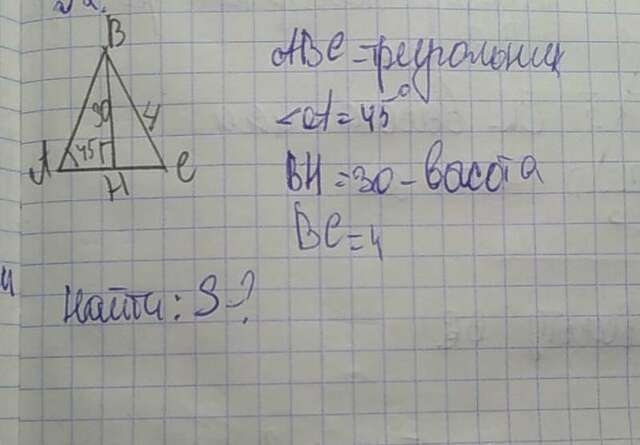 B
30
4
A
45
H
C
ABC - треугольник
<A = 45°
BH = 30 - васота
BC = 4
Найти: S - ?